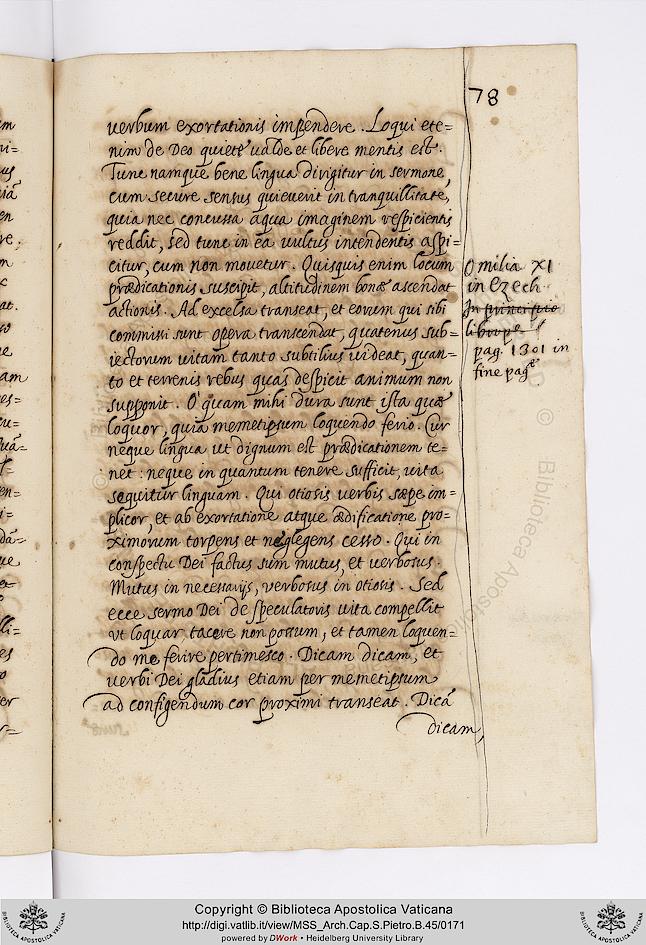 78
uerbum exortationis impendere. Loqui ete=
nim de Deo quiete ualde et libere mentis est.
Tunc namque bene lingua dirigitur in sermone,
cum secure sensus quieuerit in tranquillitate,
quia nec concussa aqua imaginem respicientis
reddit, sed tunc in ea uultus intendentis aspi=
citur, cum non mouetur. Quisquis enim locum
prædicationis suscipit, altitudinem bonæ ascendat
actionis. Ad excelsa transeat, et eorum qui sibi
commissi sunt opera transcendat, quatenus sub=
iectorum uitam tanto subtilius uideat, quan=
to et terrenis rebus quas despicit animum non
supponit. O quam mihi dura sunt ista quæ
loquor, quia memetipsum loquendo ferio. Cur
neque lingua ut dignum est prædicationem te=
net: neque in quantum tenere sufficit, uita
sequitur linguam. Qui otiosis uerbis sæpe im=
plicor, et ab exortatione atque ædificatione pro=
ximorum torpens et neglegens cesso. Qui in
conspectu Dei factus sum mutus, et uerbosus.
Mutus in necessarijs, verbosus in otiosis. Sed
ecce sermo Dei de speculatoris uita compellit
vt loquar tacere non possum, et tamen loquen=
do me ferire pertimesco. Dicam dicam, et
uerbi Dei gladius etiam per memetipsum
ad configendum cor proximi transeat. Dicã
dicam,
Omilia XI
in Ezech
In principio
libro
pag. 1301 in
fine pagæ
© Biblioteca Aposto
Copyright © Biblioteca Apostolica Vaticana
http://digi.vatlib.it/view/MSS_Arch.Cap.S.Pietro.B.45/0171
powered by DWork • Heidelberg University Library